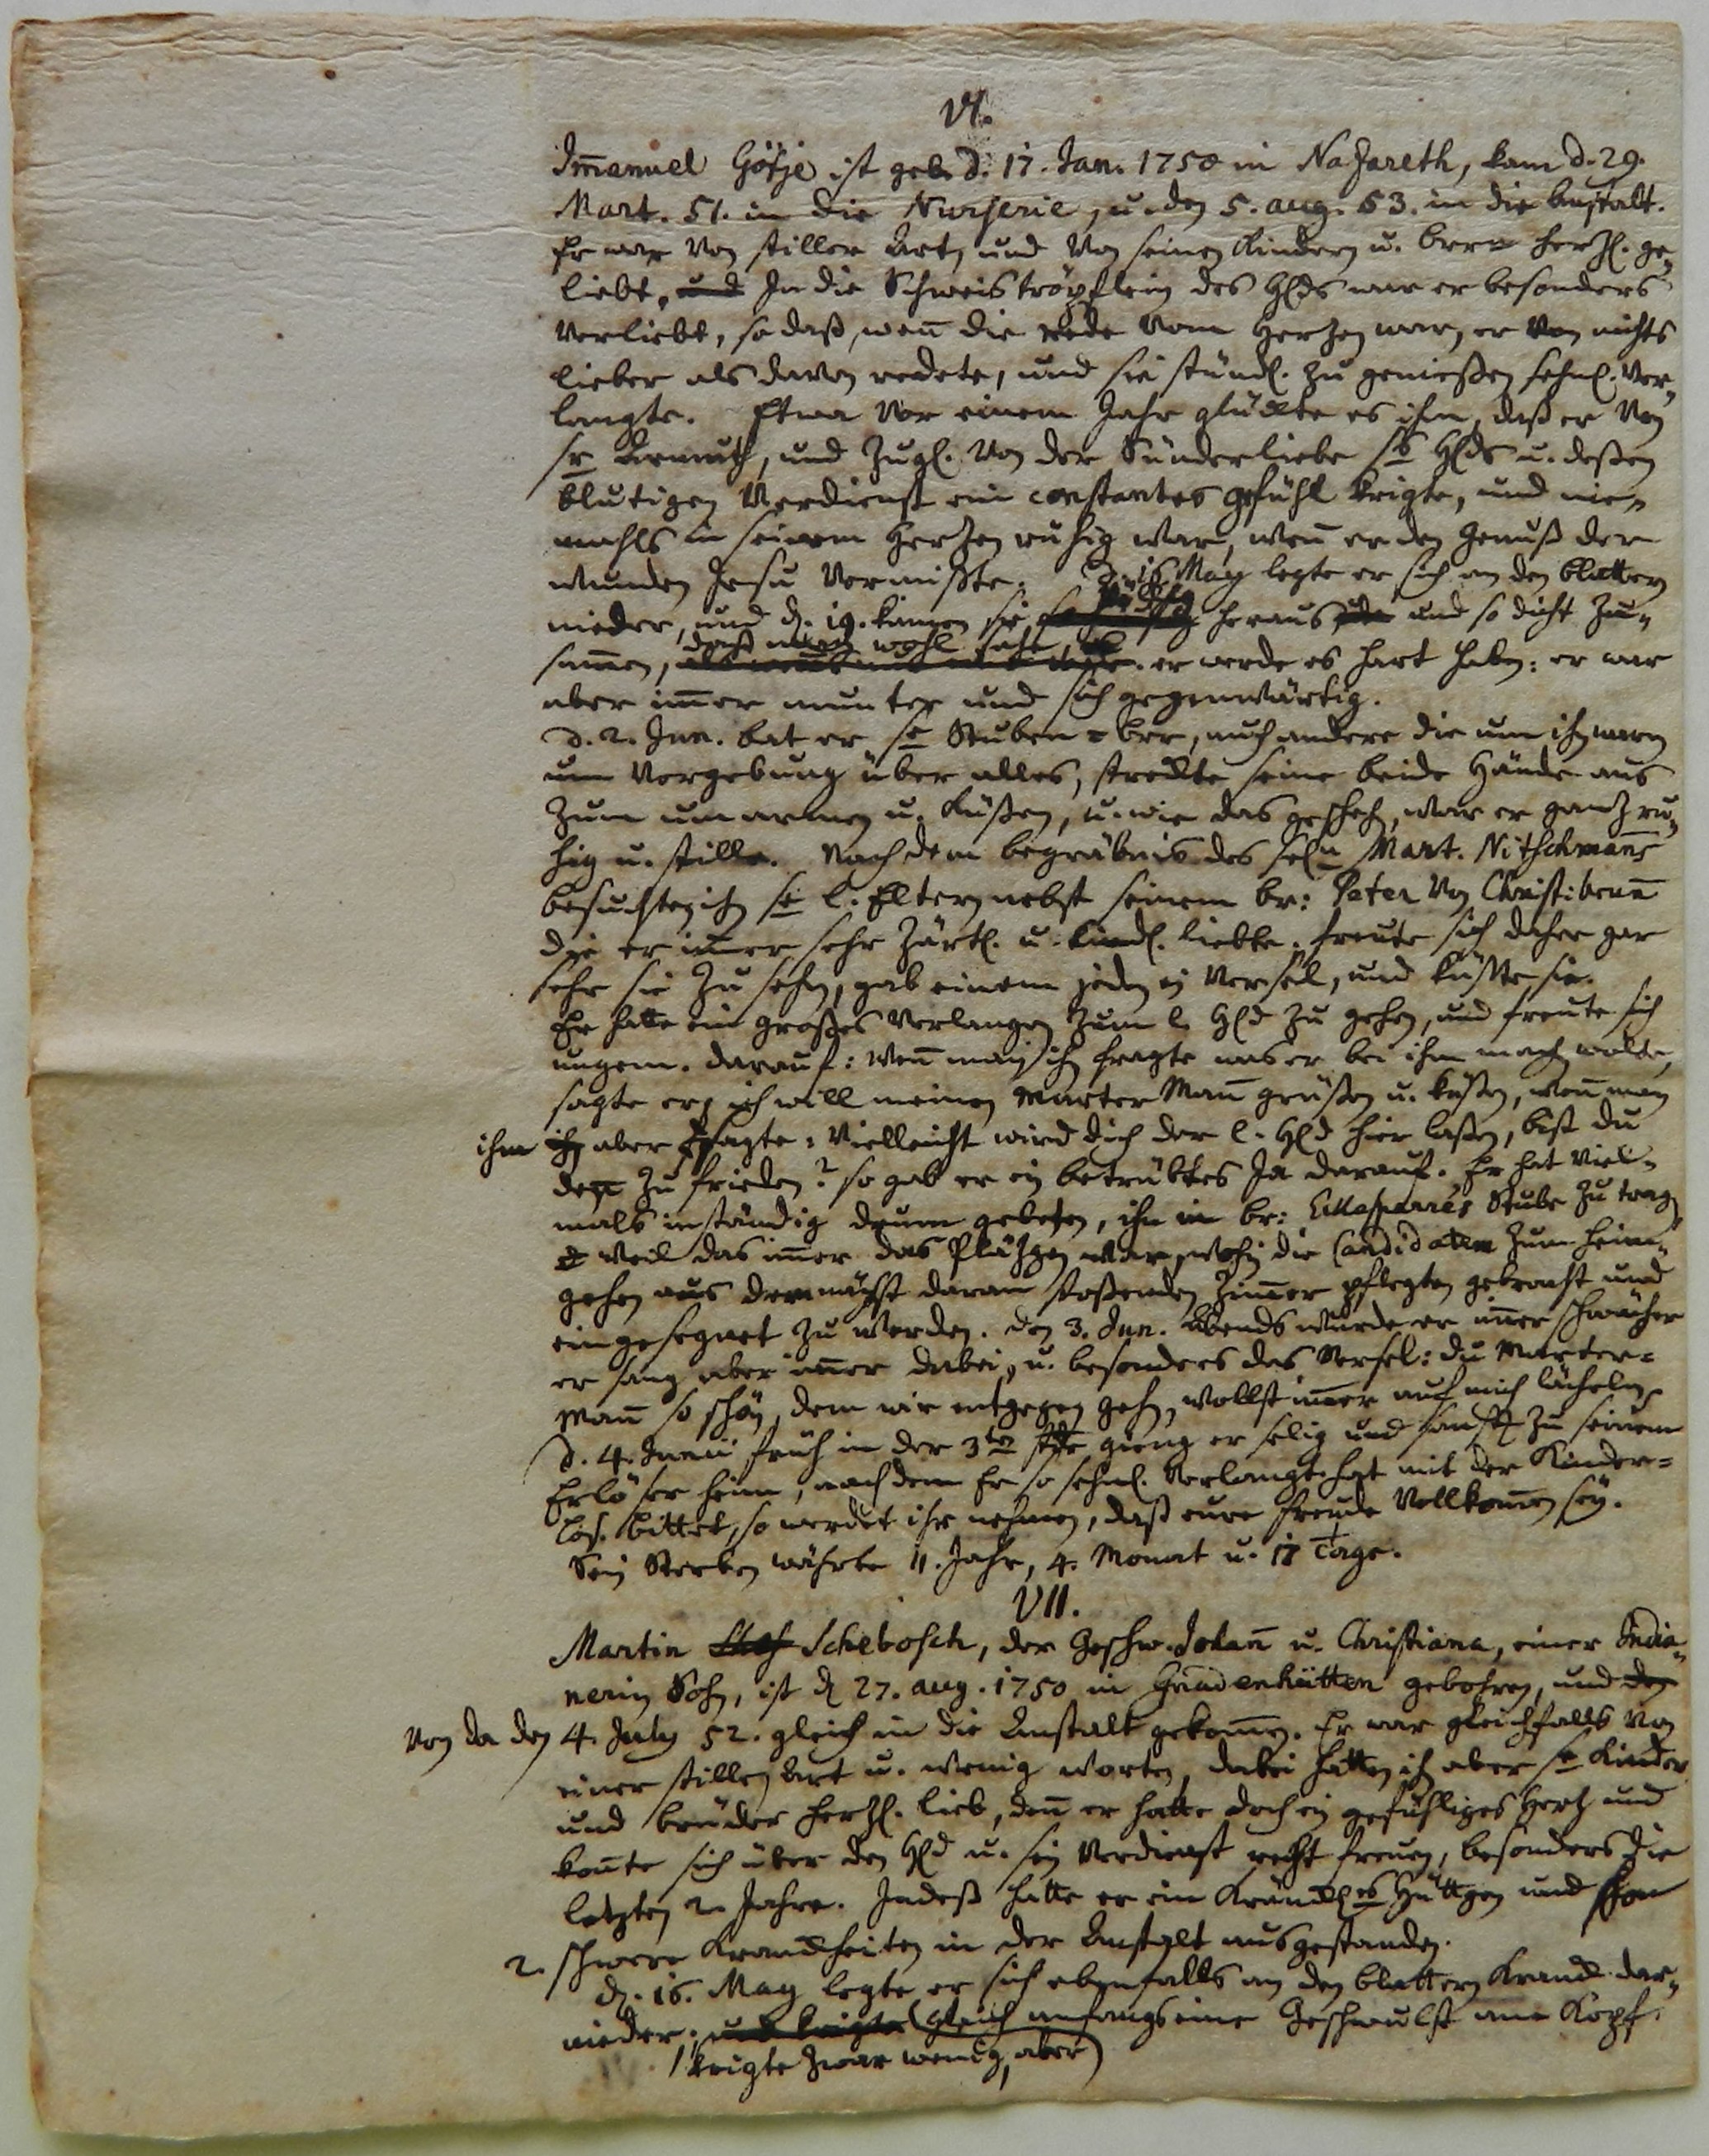 VI.
Im̅anuel Götje ist geb. d. 17. Jan. 1750 in Nazareth, kam d. 29.
Mart. 51. in die Nurserie, u. den 5. aug. 53. in die Anstalt.
Er war von stiller Art, und von seinen Kindern u. brrn hertzl. ge-
liebt, und In die Schweis tröpflein des Hlds war er besonders
verliebt, so daß, wen̅ die rede vom Hertzen war, er von nichts
lieber als davon redete, und sie stündl. zu genießen sehnl. ver-
langte. Etwa vor einem Jahr glückte es ihm, daß er von
sr Armuth, und zugl. von der Sünderliebe ss Hlds u. deßen
blutigen Verdienst ein constantes gefühl krigte, und nie-
mahls in seinem Hertzen ruhig war, wen̅ er den Genuß der
wunden Jesu vermißte. d. 16 May legte er sich an den blattern
nieder, und d. 19. kamen sie heraus und so dicht zu-
sam̅en, daß man wohl sahe, er werde es hart haben: er war
aber im̅er munter und sich gegenwärtig.
d. 2. Jun. bat er se Stuben-brr, auch andere die um ihn waren
um Vergebung über alles, streckte seine beide Hände aus
zum umarmen u. küßen, u. wie das geschehn, war er gantz ru-
hig u. stille. Nach dem begräbnis des seln Mart. Nitschmanns
besuchten ihn se l. Eltern nebst seinem br: Peter von Christ: brun̅
die er im̅er sehr zärtl. u. kindl. liebte, freute sich daher gar
sehr sie zu sehn, gab einem jeden ein Versel, und küßte sie.
Er hatte ein großes Verlangen zum l. Hld zu gehen, und freute sich
ungem. darauf: wen̅ man ihn fragte was er bei ihm machen wolte,
sagte er, ich will meinen Marter Man̅ grüßen u. küßen, wen̅ man
ihm ihn aber sagte: Vielleicht wird dich der l. Hld hier laßen, bist du
den̅ zu frieden? so gab er ein betrübtes Ja darauf. Er hat viel-
mals inständig drum gebeten, ihn in br: Stube zu tragen
weil das im̅er das Plätzgen war, wohin die Candidaten zum heim-
gehen aus dem nächst daran stoßenden Zim̅er pflegten gebracht und
eingesegnet zu werden. Den 3. Jun. Abends wurde er im̅er schwächer
er sang aber im̅er dabei, u. besonders das Versel: du Marter-
Man̅ so schön, dem wir entgegen gehn, wollst im̅er auf mich lächeln.
d. 4. Junii früh in der 3ten stde gieng er selig und sanft zu seinem
Erlöser heim, nach dem Er so sehnl. verlangt hat mit der Kinder-
Los. bittet, so werdet ihr nehmen, daß eure freude vollkom̅en sey.
Sein Sterben währte 11. Jahr, 4. Monat u. 17 Tage.
VII.
Martin Schebosch, der Geschw. Johan̅ u. Christiana, einer India-
nerin Sohn, ist d 27. aug. 1750 in Gnadenhütten gebohren, und den
von da den 4. July 52. gleich in die Anstalt gekom̅en. Er war gleichfalls von
einer stillen Art u. wenig worten, dabei hatten ihn aber se Kinder
und brüder hertzl. lieb, den̅ er hatte doch ein gefühliges Hertz und
kon̅te sich über den Hld u. sein Verdienst recht freuen, besonders die
letzten 2. Jahre. Indeß hatte er ein kränckles Hüttgen und schon
2. schwere Kranckheiten in der Anstalt ausgestanden.
d. 16. May legte er sich ebenfalls an den blattern kranck dar-
nieder; und krigte gleich anfangs eine Geschwulst am Kopf.
krigte zwar wenig, aber